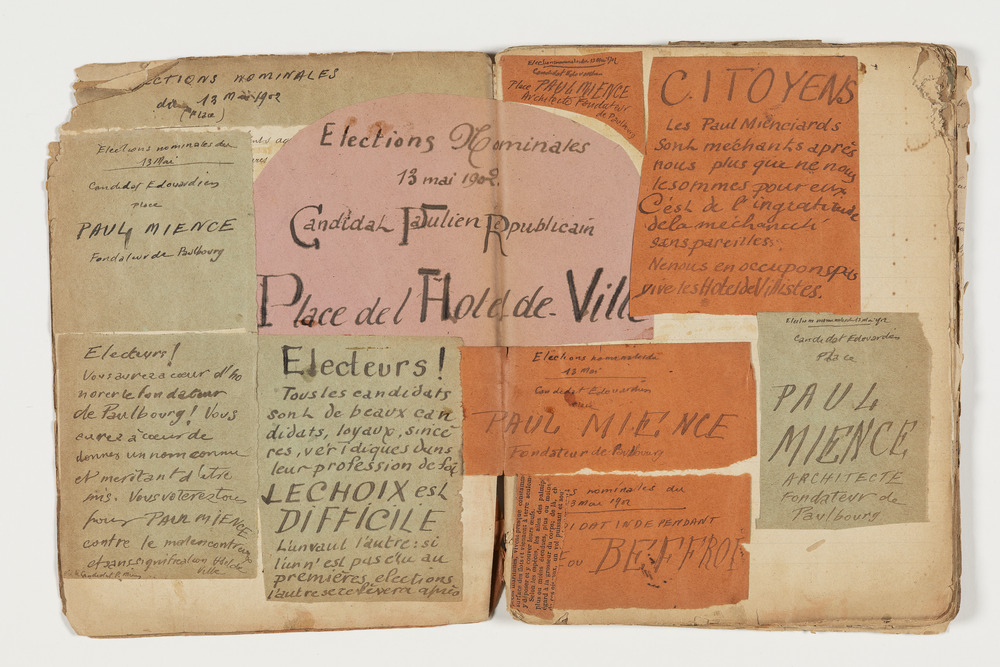 CTIONS NOMINALES
du 13 Mai 1902
(Place)
Elections nominales du
13 Mai
Candidat Edouardien
Place
PAUL MIENCE
Fondateur de Paulbourg
Electeurs!
Vous aurez à cœur d'ho
norer le fondateur
de Paulbourg! Vous
aurez à cœur de
donner un nom connu
et méritant d'être
pris. Vous voterez tous
pour PAUL MIENCE
contre le malencontreux
et sans signification Hôtel de
Ville
Elections Nominales
13 mai 1902.
Candidat Paulien Républicain
Place de l Hotel de Ville
Electeurs!
Tous les candidats
sont de beaux can
didats, loyaux, sincè
res, véridiques dans
leur profession de foi
LE CHOIX est
DIFFICILE
L'un vaut l'autre: si
l'un n'est pas élu au
premières elections
l'autre se relèvera après
Candidat Edouardien
Place PAUL MIENCE
Architecte Fondateur
de Paulbourg
CITOYENS
Les Paul Mienciards
sont méchants après
nous plus que ne nous
le sommes pour eux.
C'est de l'ingratitude
de la méchanceté
sans pareilles.
Ne nous en occupons pas
vive les Hotel de Villistes.
Elections nominales du
13 Mai
Candidat Edouardien
PAUL MIENCE
Fondateur de Paulbourg
s nominales du
3 mai 1902
DIDAT INDEPENDANT
OU BEFFROI
Candidat Edouardien
Place
PAUL
MIENCE
ARCHITECTE
Fondateur de
Paulbourg